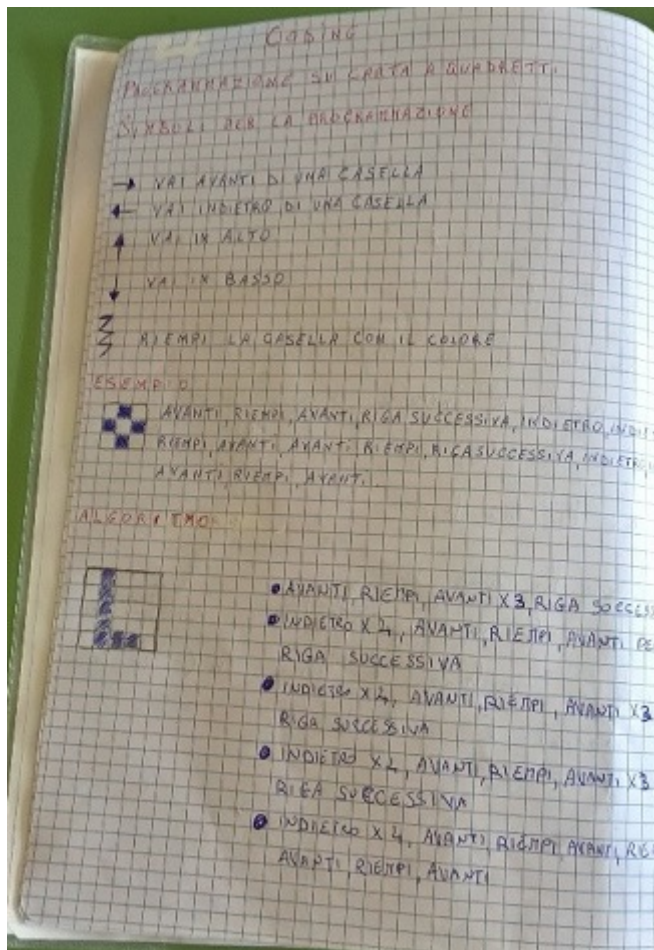 CODING
PROGRAMMAZIONE SU CARTA A QUADRETTI
SIMBOLI PER LA PROGRAMMAZIONE
→ VAI AVANTI DI UNA CASELLA
← VAI INDIETRO DI UNA CASELLA
↑ VAI IN ALTO
↓ VAI IN BASSO
RIEMPI LA CASELLA CON IL COLORE
ESEMPIO
AVANTI, RIEMPI, AVANTI, RIGA SUCCESSIVA, INDIETRO,
RIEMPI, AVANTI, AVANTI, RIEMPI, RIGA SUCCESSIVA, INDIETRO,
AVANTI, RIEMPI, AVANTI.
ALGORITMO
• AVANTI, RIEMPI, AVANTI X3, RIGA
• INDIETRO X4, AVANTI, RIEMPI, AVANTI
RIGA SUCCESSIVA
• INDIETRO X4, AVANTI, RIEMPI, AVANTI X3
RIGA SUCCESSIVA
• INDIETRO X4, AVANTI, RIEMPI, AVANTI X3
RIGA SUCCESSIVA
• INDIETRO X4, AVANTI, RIEMPI, AVANTI,
AVANTI, RIEMPI, AVANTI